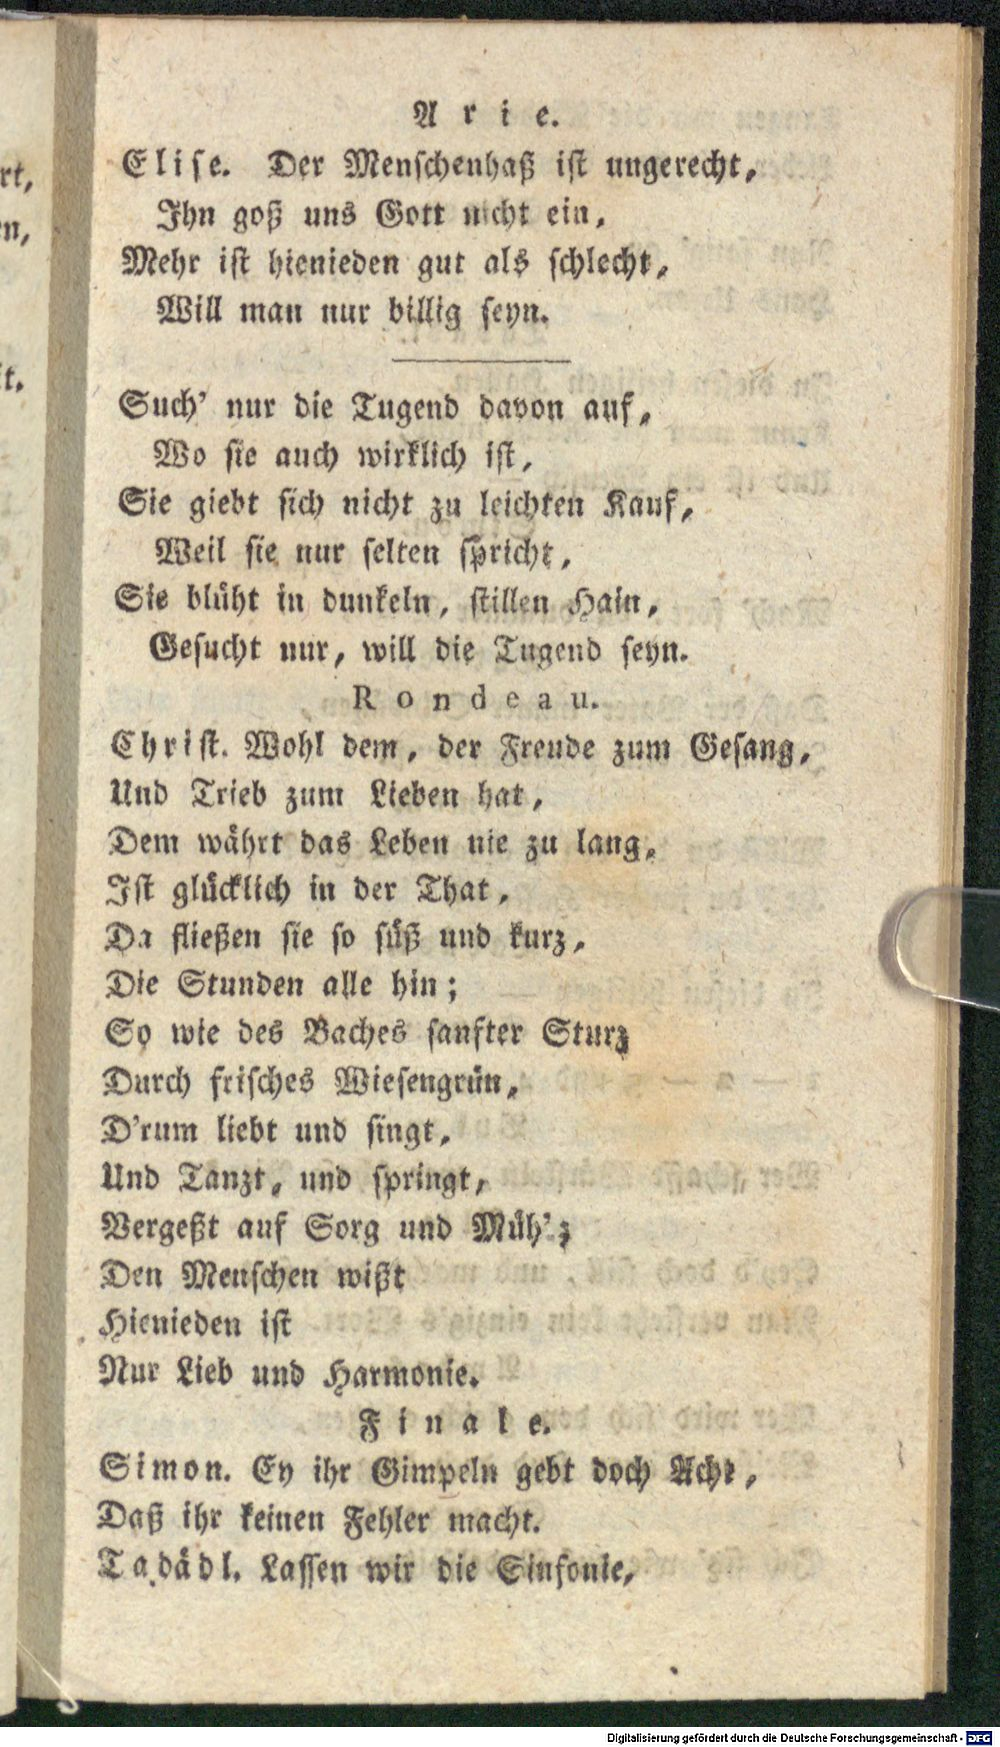 Arie.
Elise. Der Menschenhaß ist ungerecht,
Ihn goß uns Gott nicht ein,
Mehr ist hienieden gut als schlecht,
Will man nur billig seyn.
Such' nur die Tugend davon auf,
Wo sie auch wirklich ist,
Sie giebt sich nicht zu leichten Kauf,
Weil sie nur selten spricht,
Sie blüht in dunkeln, stillen Hain,
Gesucht nur, will die Tugend seyn.
Rondeau.
Christ. Wohl dem, der Freude zum Gesang,
Und Trieb zum Lieben hat,
Dem währt das Leben nie zu lang,
Ist glücklich in der That,
Da fließen sie so süß und kurz,
Die Stunden alle hin;
So wie des Baches sanfter Sturz
Durch frisches Wiesengrün,
D'rum liebt und singt,
Und Tanzt, und springt,
Vergeßt auf Sorg und Müh';
Den Menschen wißt
Hienieden ist
Nur Lieb und Harmonie.
Finale.
Simon. Ey ihr Gimpeln gebt doch Acht,
Daß ihr keinen Fehler macht.
Tadädl. Lassen wir die Sinfonie,
Digitalisierung gefördert durch die Deutsche Forschungsgemeinschaft - DFG